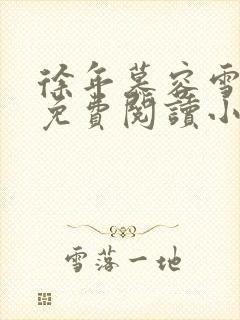 徐年慕容雪
免費閱讀小
雪落一地